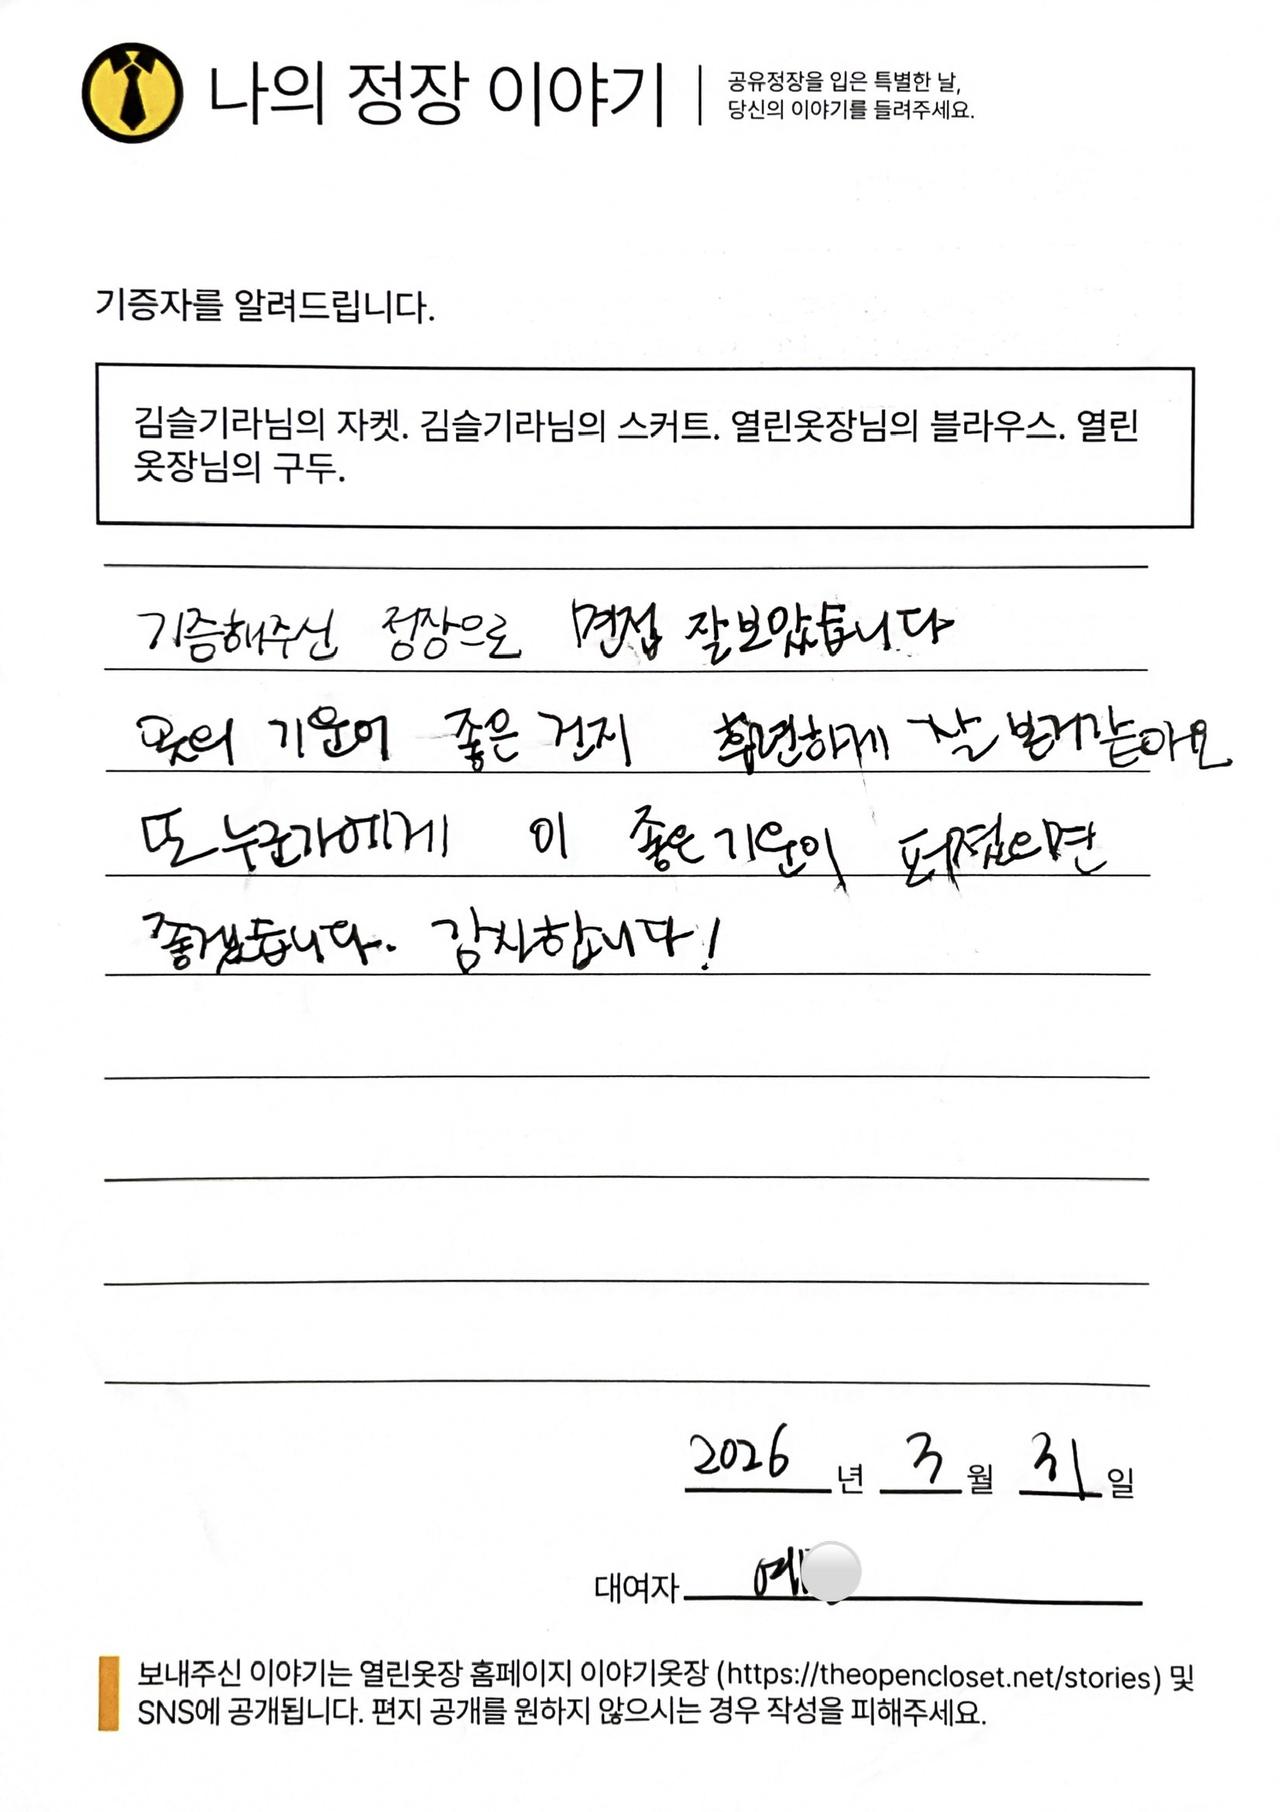 나의 정장 이야기
공유정장을 입은 특별한 날,
당신의 이야기를 들려주세요.
기증자를 알려드립니다.
김슬기라님의 자켓. 김슬기라님의 스커트. 열린옷장님의 블라우스. 열린
옷장님의 구두.
기증해주신 정장으로 면접 잘보았습니다
옷의 기운이 좋은 건지 후련하게 잘 본거같아요
또 누군가에게 이 좋은 기운이 퍼졌으면
좋겠습니다. 감사합니다!
2026 년 3 월 31 일
대여자 예
보내주신 이야기는 열린옷장 홈페이지 이야기옷장 (https://theopencloset.net/stories) 및
SNS에 공개됩니다. 편지 공개를 원하지 않으시는 경우 작성을 피해주세요.